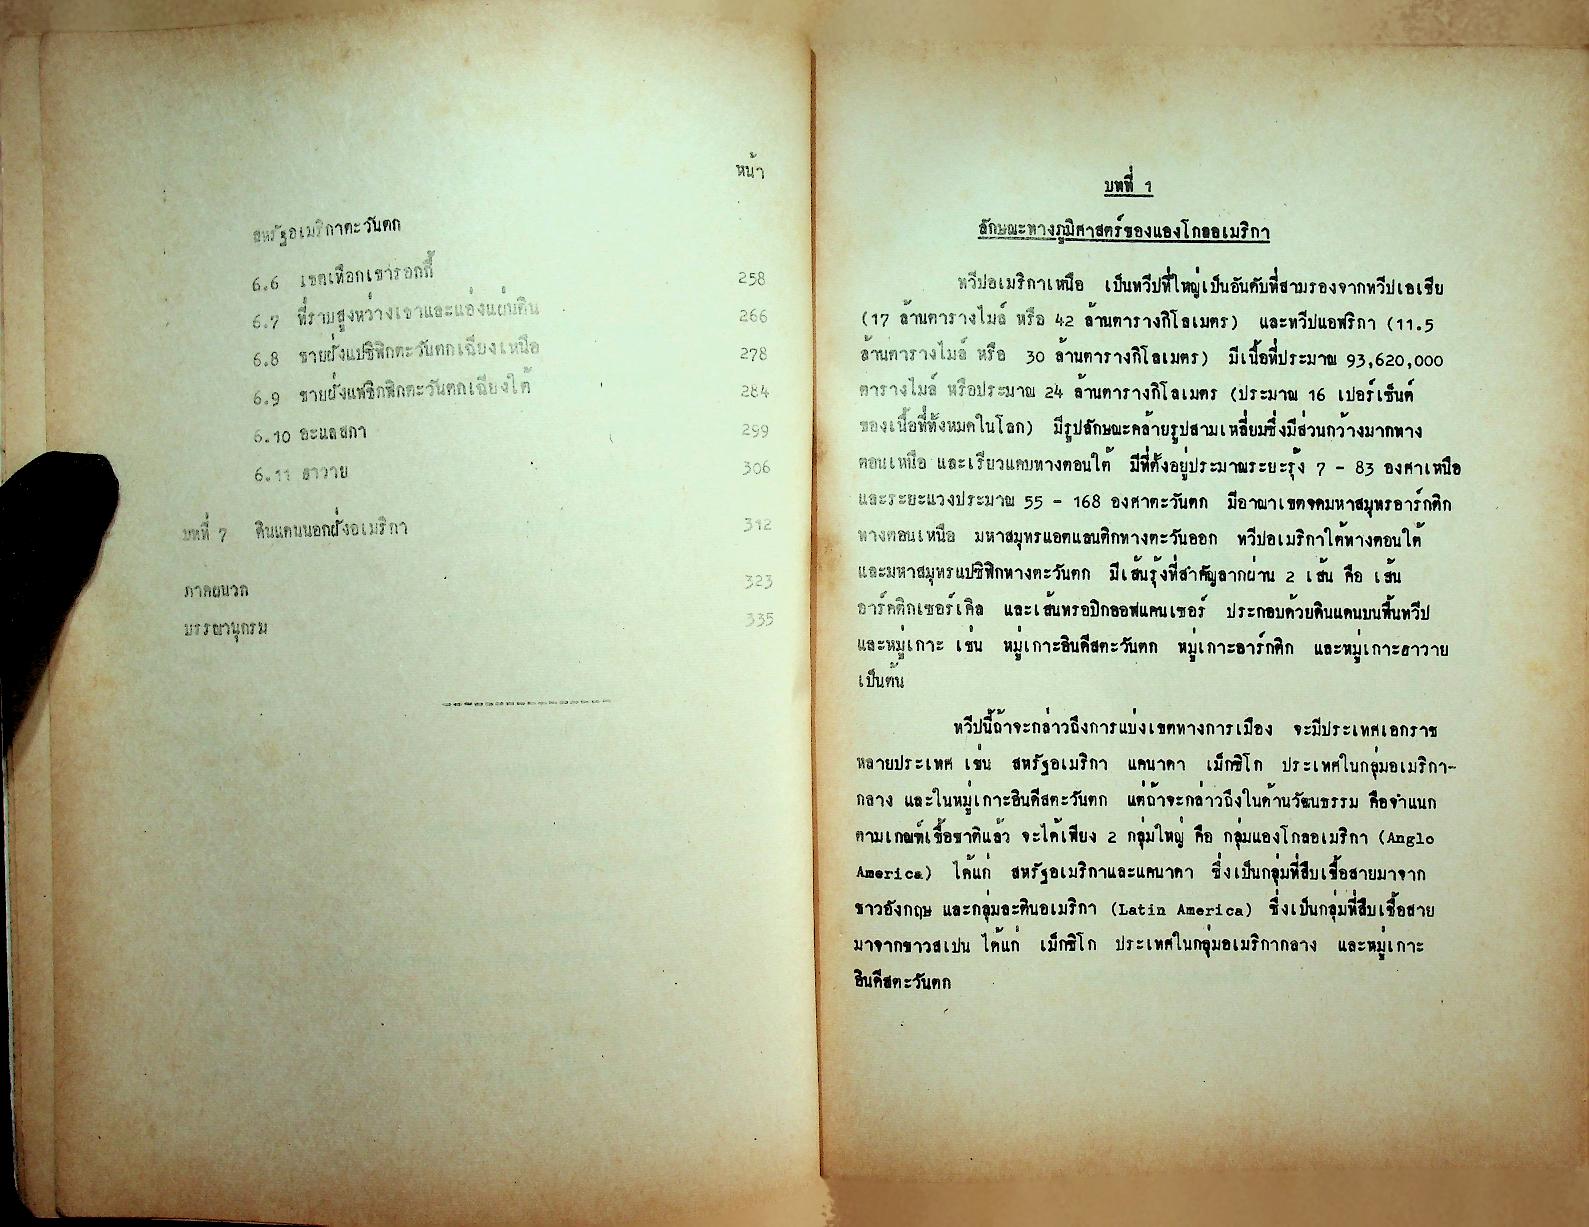 หน้า
สหรัฐอเมริกาตะวันตก
6.6 เขตเทือกเขารอกกี้ 258
6.7 ที่ราบสูงหว่างเขาและแอ่งแผ่นดิน 266
6.8 ชายฝั่งแปซิฟิกตะวันตกเฉียงเหนือ 278
6.9 ชายฝั่งแฟซิกฟิกตะวันตกเฉียงใต้ 284
6.10 อะแลสกา 299
6.11 ฮาวาย 306
บทที่ 7 ดินแดนนอกฝั่งอเมริกา 312
ภาคผนวก 323
บรรณานุกรม 335
บทที่ 1
ลักษณะทางภูมิศาสตร์ของแองโกลอเมริกา
ทวีปอเมริกาเหนือ เป็นทวีปที่ใหญ่เป็นอันดับที่สามรองจากทวีปเอเชีย
(17 ล้านตารางไมล์ หรือ 42 ล้านตารางกิโลเมตร) และทวีปแอฟริกา (11.5
ล้านตารางไมล์ หรือ 30 ล้านตารางกิโลเมตร) มีเนื้อที่ประมาณ 93,620,000
ตารางไมล์ หรือประมาณ 24 ล้านตารางกิโลเมตร (ประมาณ 16 เปอร์เซ็นต์
ของเนื้อที่ทั้งหมดในโลก) มีรูปลักษณะคล้ายรูปสามเหลี่ยมซึ่งมีส่วนกว้างมากทาง
ตอนเหนือ และเรียวแคบทางตอนใต้ มีที่ตั้งอยู่ประมาณระยะรุ้ง 7 - 83 องศาเหนือ
และระยะแวงประมาณ 55 - 168 องศาตะวันตก มีอาณาเขตจดมหาสมุทรอาร์กติก
ทางตอนเหนือ มหาสมุทรแอตแลนติกทางตะวันออก ทวีปอเมริกาใต้ทางตอนใต้
และมหาสมุทรแปซิฟิกทางตะวันตก มีเส้นรุ้งที่สำคัญลากผ่าน 2 เส้น คือ เส้น
อาร์คติกเซอร์เคิล และเส้นทรอปิกออฟแคนเซอร์ ประกอบด้วยดินแดนบนพื้นทวีป
และหมู่เกาะ เช่น หมู่เกาะอินดีสตะวันตก หมู่เกาะอาร์กติก และหมู่เกาะฮาวาย
เป็นต้น
ทวีปนี้ถ้าจะกล่าวถึงการแบ่งเขตทางการเมือง จะมีประเทศเอกราช
หลายประเทศ เช่น สหรัฐอเมริกา แคนาดา เม็กซิโก ประเทศในกลุ่มอเมริกา-
กลาง และในหมู่เกาะอินดีสตะวันตก แต่ถ้าจะกล่าวถึงในด้านวัฒนธรรม คือจำแนก
ตามเกณฑ์เชื้อชาติแล้ว จะได้เพียง 2 กลุ่มใหญ่ คือ กลุ่มแองโกลอเมริกา (Anglo
America) ได้แก่ สหรัฐอเมริกาและแคนาดา ซึ่งเป็นกลุ่มที่สืบเชื้อสายมาจาก
ชาวอังกฤษ และกลุ่มละตินอเมริกา (Latin America) ซึ่งเป็นกลุ่มที่สืบเชื้อสาย
มาจากชาวสเปน ได้แก่ เม็กซิโก ประเทศในกลุ่มอเมริกากลาง และหมู่เกาะ
อินดีสตะวันตก